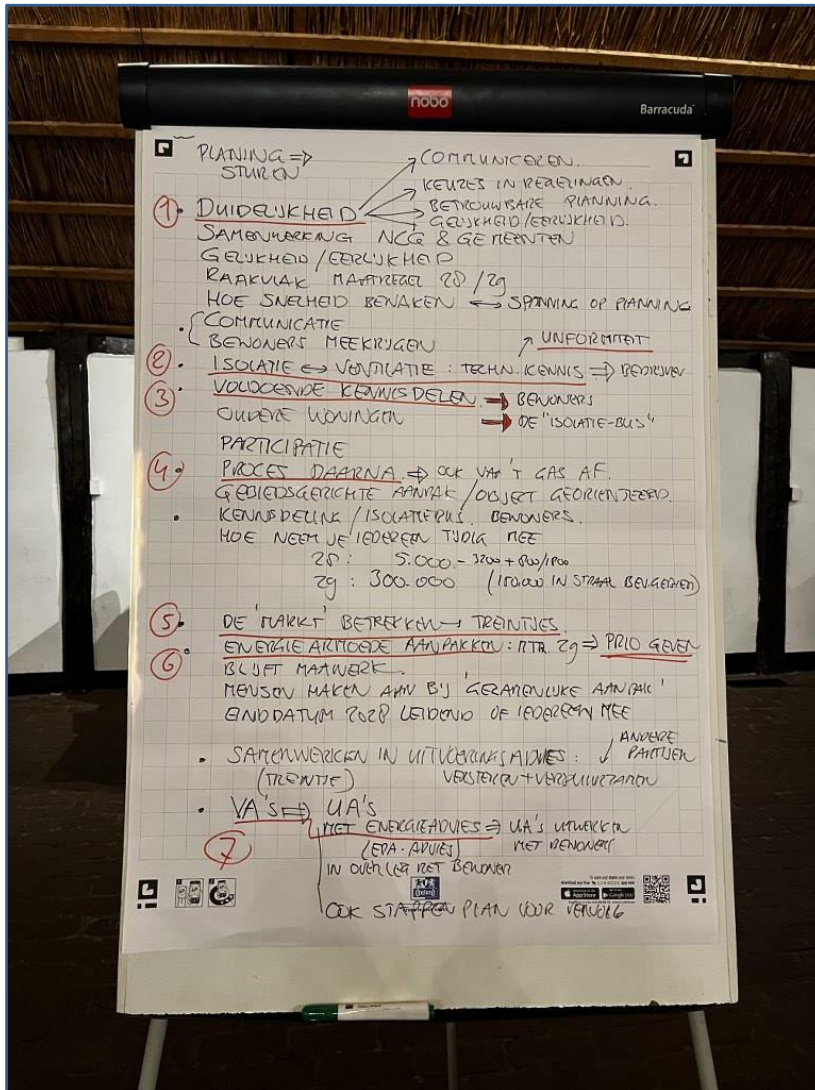 nobo
Barracuda
PLANING ⇒ COMMUNICEREN.
STUREN KEUZES IN REGELINGEN.
BETROUWBARE PLANNING.
① DUIDELIJKHEID GELIJKHEID/EERLIJKHEID.
SAMENWERKING NCG & GEMEENTEN
GELIJKHEID/EERLIJKHEID
RAAKVLAK MAATREGEL 28/29
HOE SNELHEID BEWAKEN ↔ SPANNING OP PLANNING
COMMUNICATIE
BEWONERS MEEKRIJGEN UNIFORMITEIT
② ISOLATIE ↔ VENTILATIE : TECHN. KENNIS ⇒ BEDRIJVEN
③ VOLDOENDE KENNISDELEN → BEWONERS
OUDERE WONINGEN → DE "ISOLATIE-BUS"
PARTICIPATIE
④ PROCES DAARNA ⇒ OOK VAN 'T GAS AF.
GEBIEDSGERICHTE AANPAK/OBJECT GEORIENTEERD.
KENNISDELING/ISOLATIEBUS. BEWONERS.
HOE NEEM JE IEDEREEN TIJDIG MEE
28: 5.000 - 3200 + 800/1800
29: 300.000 (150.000 IN
⑤ DE 'MARKT' BETREKKEN → TREINTJES.
⑥ ENERGIEARMOEDE AANPAKKEN: MTR 29 ⇒ PRIO GEVEN
BLIJFT MAATWERK.
MENSEN HAKEN AAN BIJ 'GEZAMENLIJKE AANPAK'
EINDDATUM 2028 LEIDEND OF IEDEREEN MEE
SAMENWERKEN IN UITVOERINGSADVIES: ANDERE PARTIJEN
(TREINTJE) VERSTERKEN + VERDUURZAMEN
⑦ VA'S ⇒ UA'S
MET ENERGIEADVIES ⇒ UA'S UITWERKEN
(EPA-ADVIES) MET BEWONERS
IN OVERLEG MET BEWONER
OOK STAPPENPLAN VOOR VERVOLG
App Store
Google Play